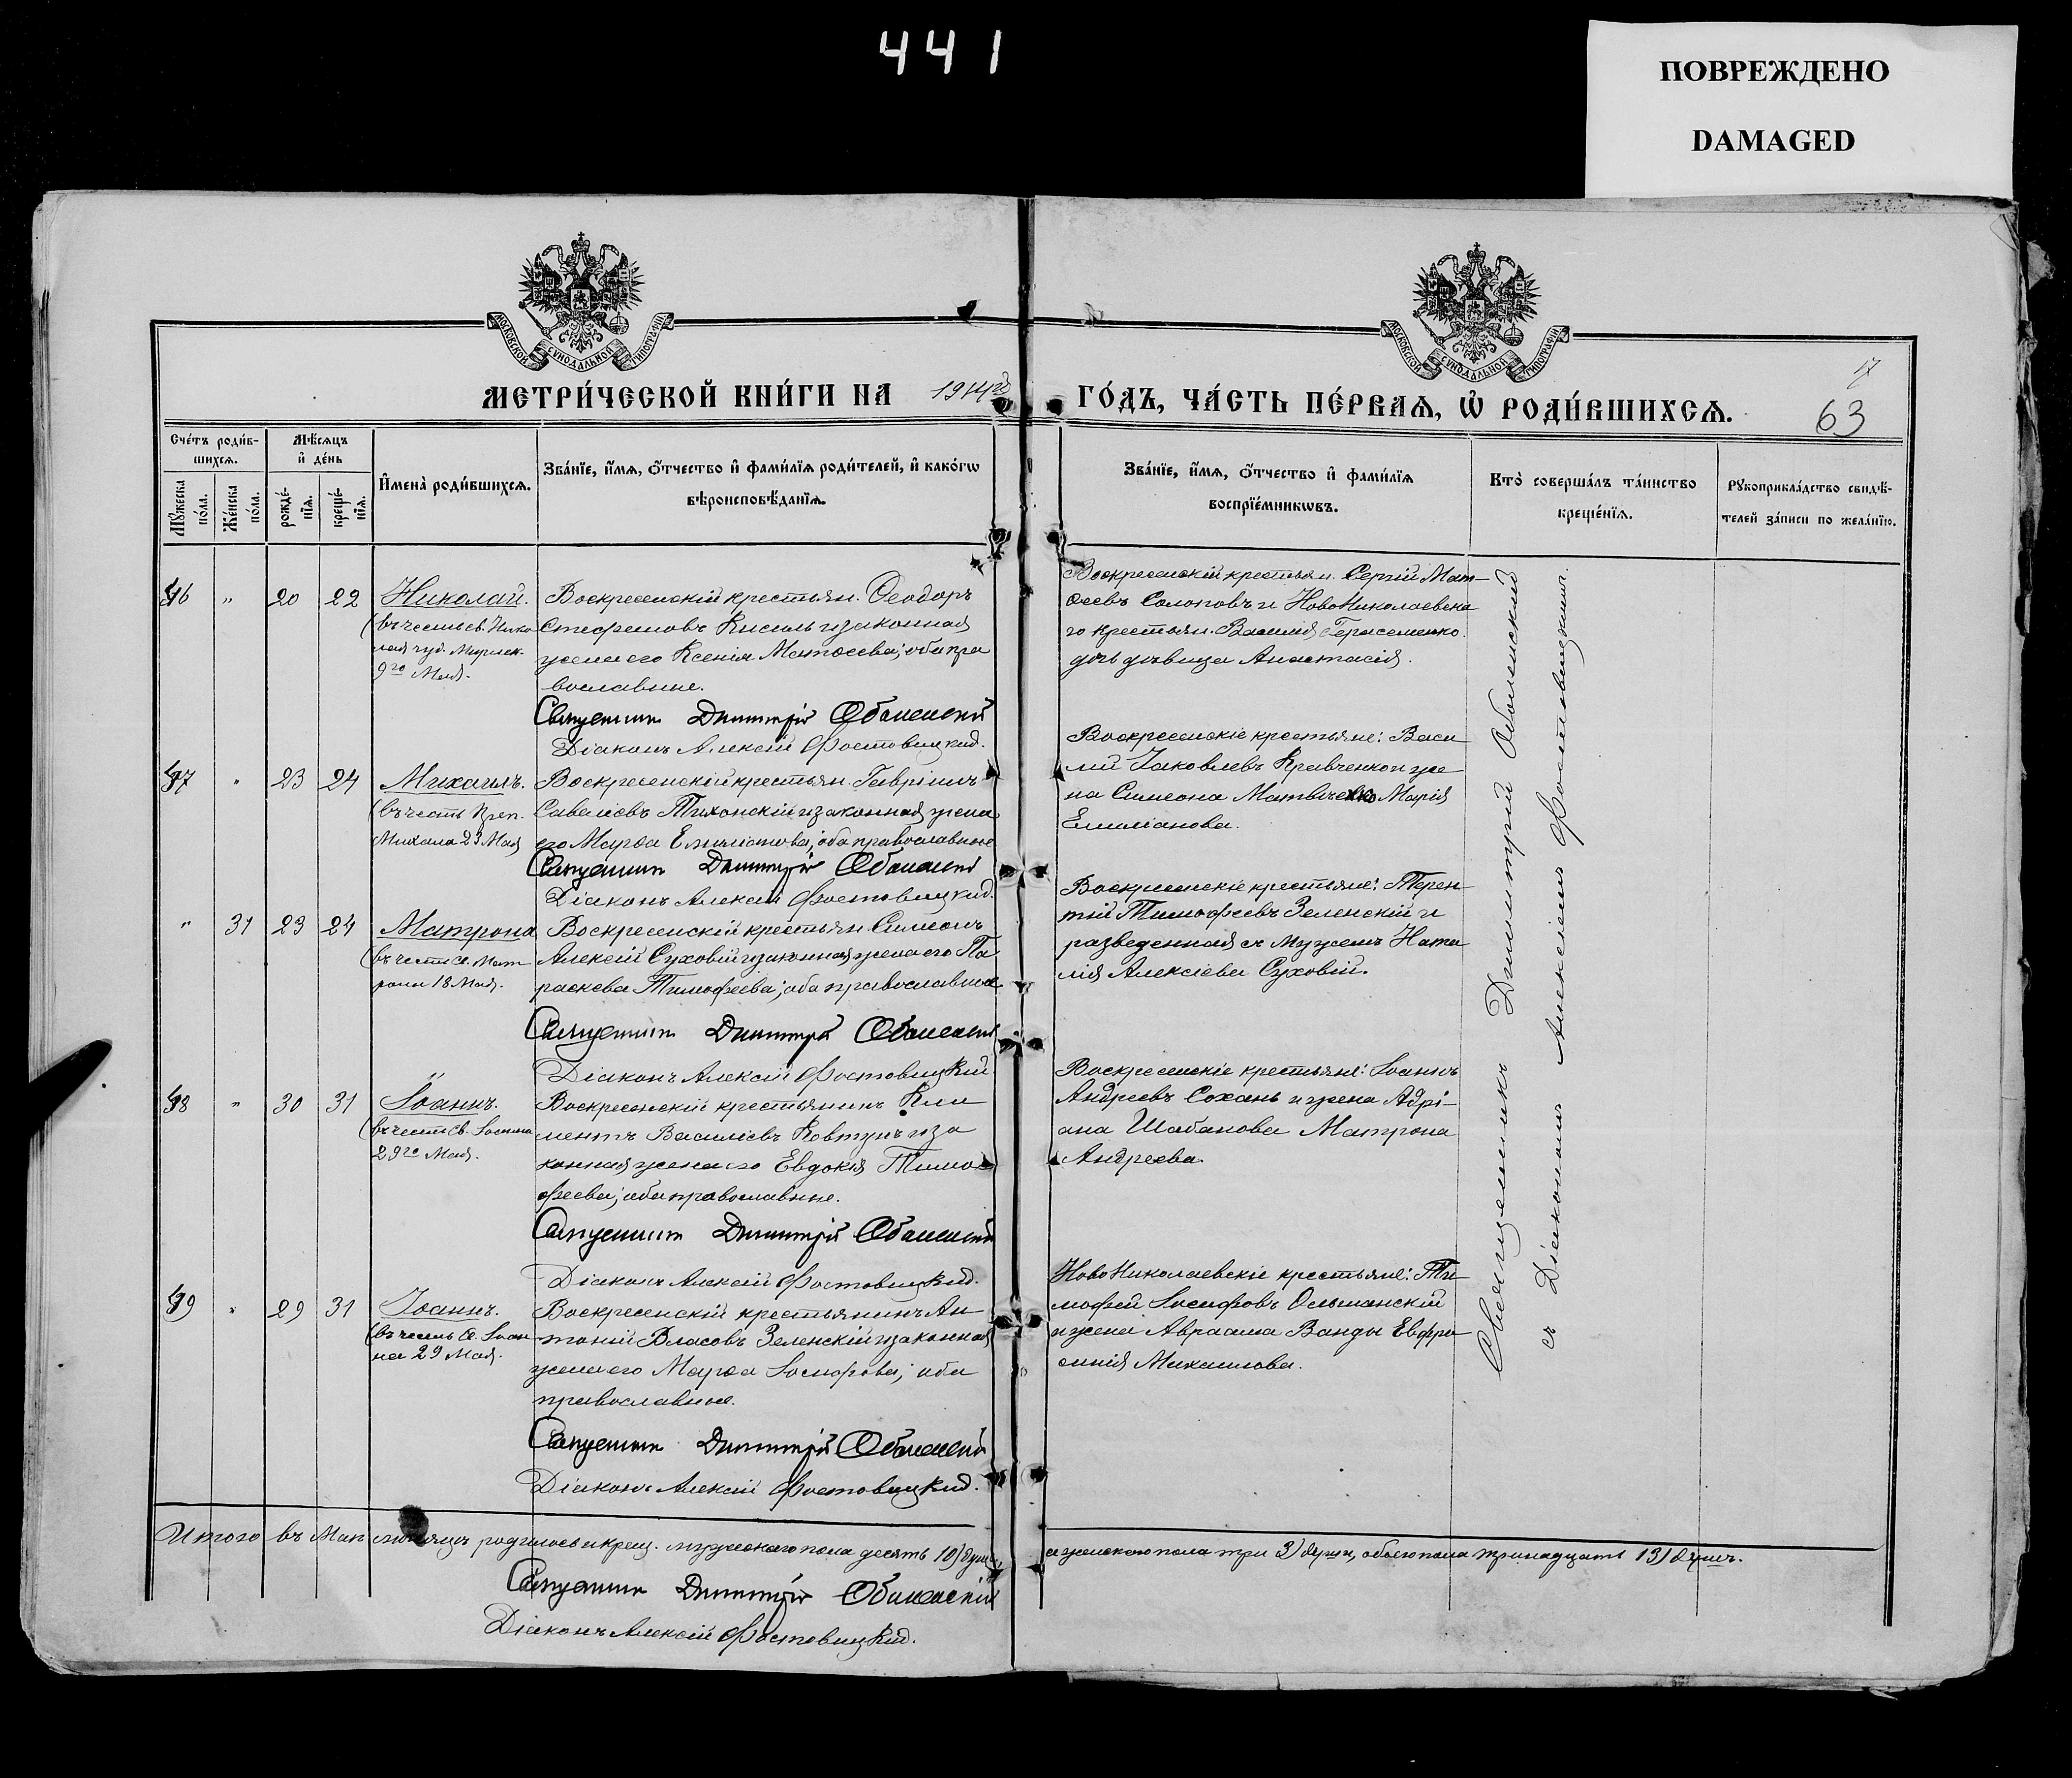 441
ПОВРЕЖДЕНО
DAMAGED
МОСКОВСКОЙ СѴНОДАЛЬНОЙ ТИПОГРАФІИ
МОСКОВСКОЙ СѴНОДАЛЬНОЙ ТИПОГРАФІИ
МЕТРИ́ЧЕСКОЙ КНИ́ГИ НА 1914 го
ГО́ДЪ, ЧА́СТЬ ПЕ́РВАЯ, Ѡ҆ РОДИ́ВШИХСЯ.
7
63
Сче́тъ роди́в-
шихся.
Мѣ́сяцъ
и҆ де́нь
Му́жеска по́ла.
Же́нска по́ла.
рожде́-
нїя.
креще́-
нїя.
И҆мена̀ роди́вшихся.
Зва́нїе, и҆́мя, ѻ҆́тчество и҆ фами́лїя роди́телей, и҆ како́гѡ
вѣроисповѣ́данїя.
Зва́нїе, и҆́мя, ѻ҆́тчество и҆ фами́лїя
воспрїе́мникѡвъ.
Кто̀ соверша́лъ та́инство
креще́нїя.
Рꙋкоприкла́дство свидѣ́-
телей за́писи по жела́нїю.
46 " 20 22 Николай.
(въ честь св. Нико
лая чуд. Мирлик.
9го Мая.
Воскресенскій крестьян. Ѳеодоръ
Стефановъ Кисиль и законная
жена его Ксенія Матѳеева; оба пра
вославные.
Священникъ Димитрій Оболенскій
Діаконъ Алексій Фостовицкій.
Воскресенскій крестьян. Сергій Мат-
ѳеевъ Солоповъ и НовоНиколаевска
го крестьян. Василія Герасеменко
дочь дѣвица Анастасія.
47 " 23 24 Михаилъ.
(въ честь Преп.
Михаила 23 Мая
Воскресенскій крестьян. Гавріилъ
Савеліевъ Тихонскій и законная жена
его Марѳа Емиліанова; оба православные
Священникъ Димитрій Оболенскій
Діаконъ Алексій Фостовицкій.
Воскресенскіе крестьяне: Васи
лій Іаковлевъ Кравченко и же
на Симеона Матвіенко Марія
Емиліанова.
" 31 23 24 Матрона
(въ честь св. Мат
роны 18 Мая.
Воскресенскій крестьян. Симеонъ
Алексій Суховій и законная жена его Па
раскева Тимофеева; оба православные
Священникъ Димитрій Оболенскій
Діаконъ Алексій Фостовицкій
Воскресенскіе крестьяне: Терен-
тій Тимофеевъ Зеленскій и
разведенная съ мужемъ Ната
лія Алексіева Суховій.
48 " 30 31 Іоаннъ.
(въ честь св. Іоанна
29го Мая.
Воскресенскій крестьянинъ Кли
ментъ Василіевъ Ковтунъ и за
конная жена его Евдокія Тимо-
феева; оба православные.
Священникъ Димитрій Оболенскій
Діаконъ Алексій Фостовицкій.
Воскресенскіе крестьяне: Іоаннъ
Андреевъ Сохань и жена Адрі-
ана Шабанова Матрона
Андреева.
49 " 29 31 Іоаннъ.
(въ честь св. Іоан-
на 29 Мая.
Воскресенскій крестьянинъ Ан-
тоній Власовъ Зеленскій и законная
жена его Марѳа Іосифова; оба
православные.
Священникъ Димитрій Оболенскій
Діаконъ Алексій Фостовицкій.
НовоНиколаевскіе крестьяне: Ти-
мофей Іосифовъ Ольшанскій
и жена Авраама Ванды Евфро-
синія Михаилова.
Священникъ Димитрій Оболенскій
съ Діакономъ Алексіемъ Фостовицкимъ.
Итого въ Маѣ мѣсяцѣ родилось и крещ. мужескаго пола десять 10) душъ
а женскаго пола три 3) души, обоего пола тринадцать 13) душъ.
Священникъ Димитрій Оболенскій
Діаконъ Алексій Фостовицкій.